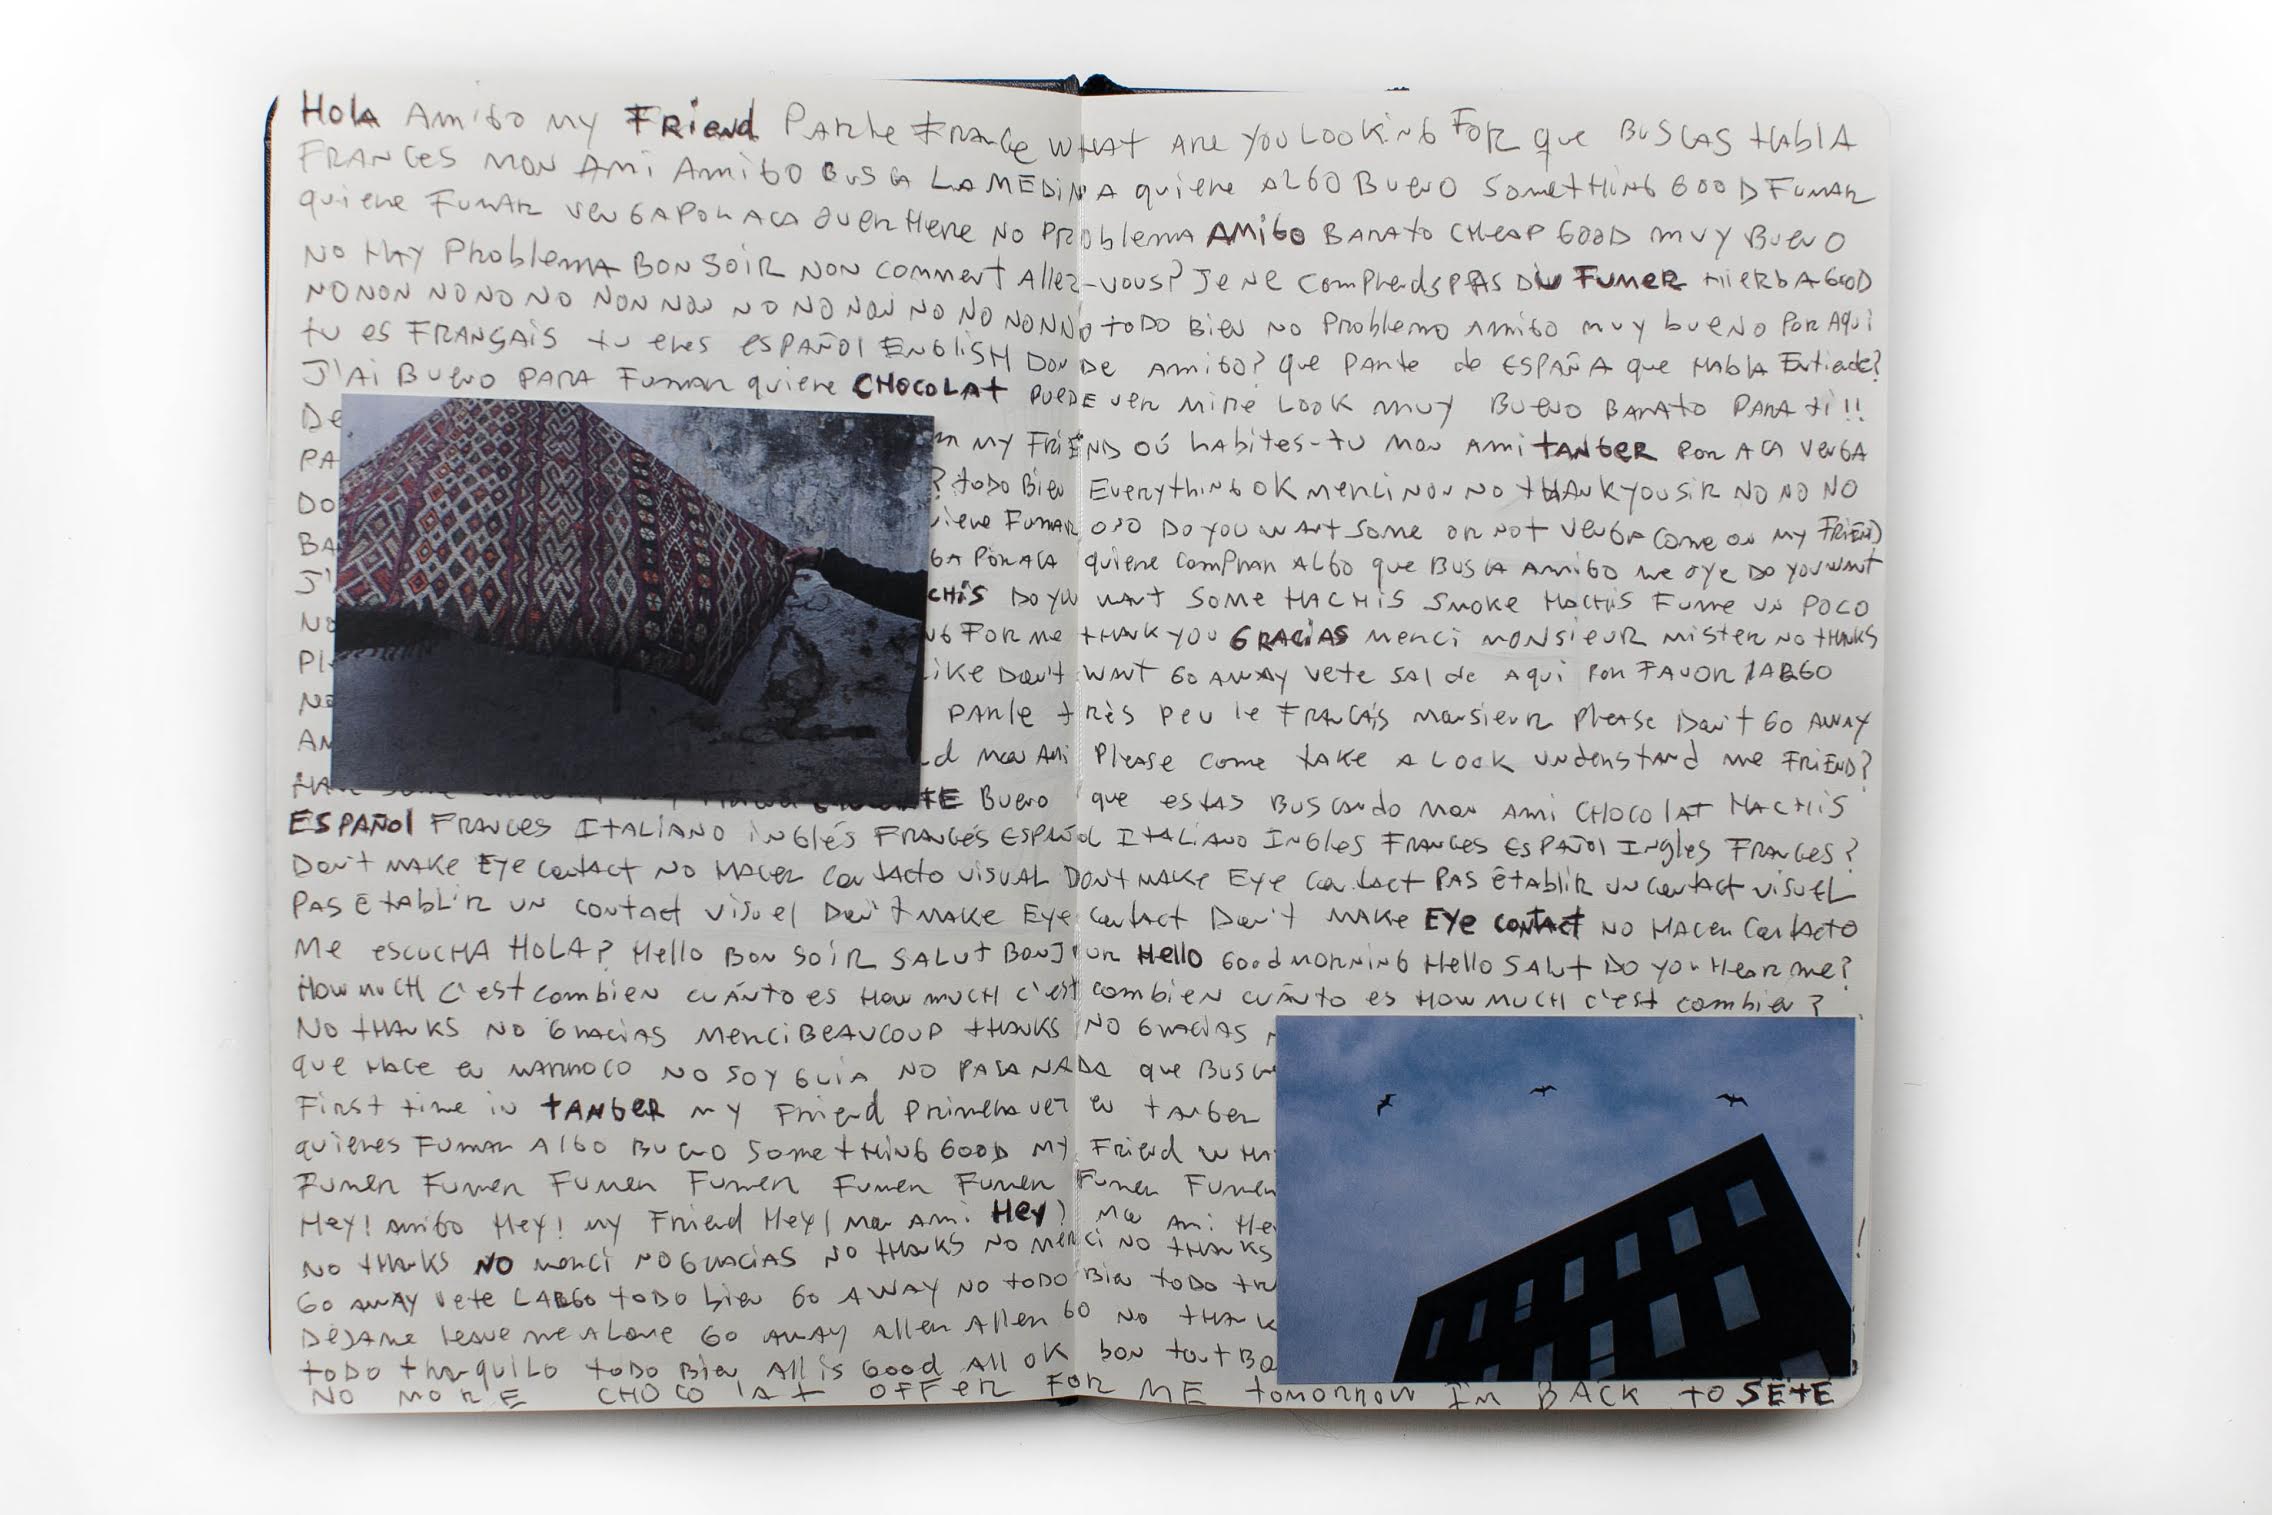 Hola Amigo my Friend Parle France What are you looking for que buscas habla
Frances mon ami amigo busca la medina quiere algo bueno something good fumar
quiere fumar venga por aca over here no problema amigo barato cheap good muy bueno
no hay problema bon soir non comment allez-vous? Je ne comprends pas du fumer hierba good
no non no no no non non no no non no no non no todo bien no problemo amigo muy bueno por aqui
tu es français tu eres español english donde amigo? que parte de España que habla entiende?
J'ai bueno para fumar quiere chocolat puede ver mire look muy bueno barato para ti!!
De
my friend où habites-tu mon ami tanger por aca venga
Pa
? todo bien everything ok merci non no thank you sir no no no
Do
quiere fumar oso do you want some or not venga come on my friend
Ba
ga por aca quiere comprar algo que busca amigo me oye do you want
J'
chis do you want some hachis smoke hachis fume un poco
No
ng for me thank you gracias merci monsieur mister no thanks
Pl
like don't want go away vete sal de aqui por favor largo
No
parle très peu le français monsieur please don't go away
Am
mon ami please come take a look understand me friend?
bueno que estas buscando mon ami chocolat hachis
Español frances italiano inglés francés español italiano ingles frances español ingles frances?
Don't make eye contact no hacer contacto visual don't make eye contact pas établir un contact visuel
pas établir un contact visuel don't make eye contact don't make eye contact no hacer contacto
me escucha hola? hello bon soir salut bonjour hello good morning hello salut do you hear me?
How much c'est combien cuánto es how much c'est combien cuánto es how much c'est combien?
No thanks no gracias merci beaucoup thanks no gracias
que hace en marroco no soy guia no pasa nada que busca
First time in tanger my friend primera vez en tanger
quieres fumar algo bueno something good my friend wha
Fumer fumer fumer fumer fumer fumer fumer fumer
Hey! amigo hey! my friend hey! mon ami hey! mon ami he
No thanks no merci no gracias no thanks no merci no thanks
Go away vete largo todo bien go away no todo bien todo tr
Dejame leave me alone go away aller aller go no thank
todo tranquilo todo bien all is good all ok bon tout bo
No more chocolat offer for me tomorrow I'm back to Sète